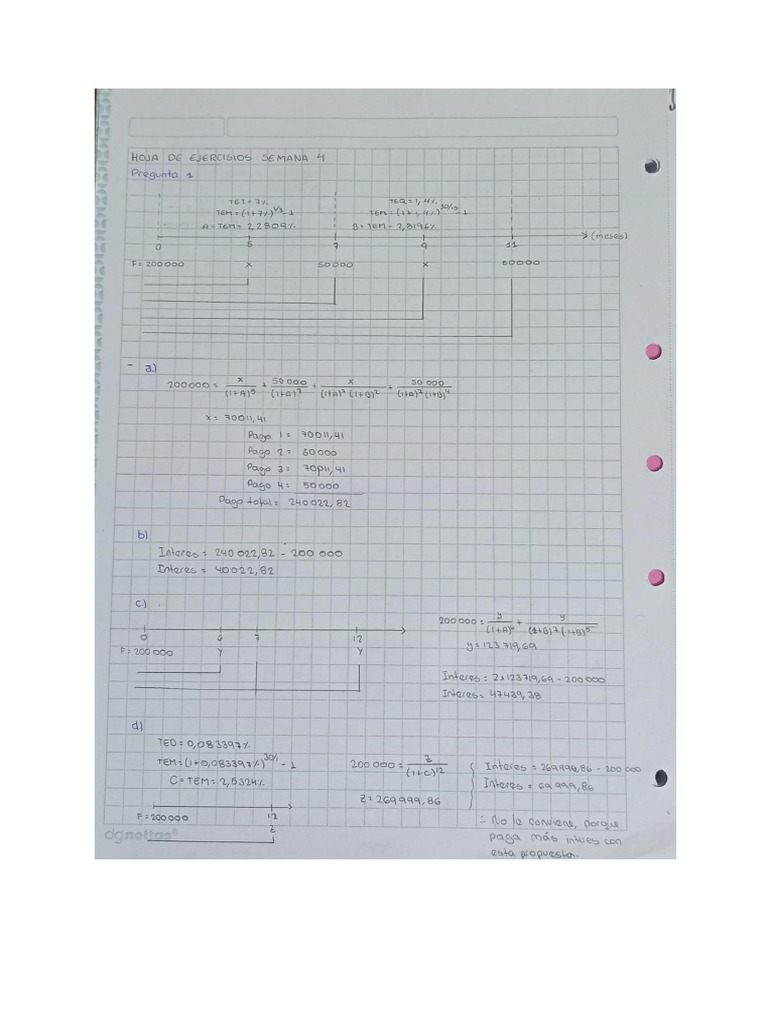 HOJA DE EJERCISIOS SEMANA 4
Pregunta 1
TET = 7%
TEM = (1+7%)^1/3 - 1
A = TEM = 2,2809%
TEQ = 1,4%
TEM = (1+1,4%)^30/15 - 1
B = TEM = 2,8196%
0 5 7 9 11 (meses)
F = 200 000 x 50 000 x 50 000
- a.)
200 000 = x/(1+A)^5 + 50 000/(1+A)^7 + x/(1+A)^7 (1+B)^2 + 50 000/(1+A)^7 (1+B)^4
x = 70011,41
Pago 1 = 70011,41
Pago 2 = 50000
Pago 3 = 70011,41
Pago 4 = 50000
Pago total = 240022,82
b)
Interes = 240 022,82 - 200 000
Interes = 40022,82
c.)
0 6 7 12
F = 200 000 y y
200 000 = y/(1+A)^6 + y/(1+A)^7 (1+B)^5
y = 123 719,69
Interes = 2x123719,69 - 200000
Interes = 47439,38
d.)
TED = 0,083397%
TEM = (1+0,083397%)^30/1 - 1
C = TEM = 2,5324%
F = 200000 12
z
200 000 = z/(1+C)^12
z = 269999,86
Interes = 269999,86 - 200 000
Interes = 69 999,86
∴ No le conviene, porque
paga más interes con
esta propuesta.
dgnottas®